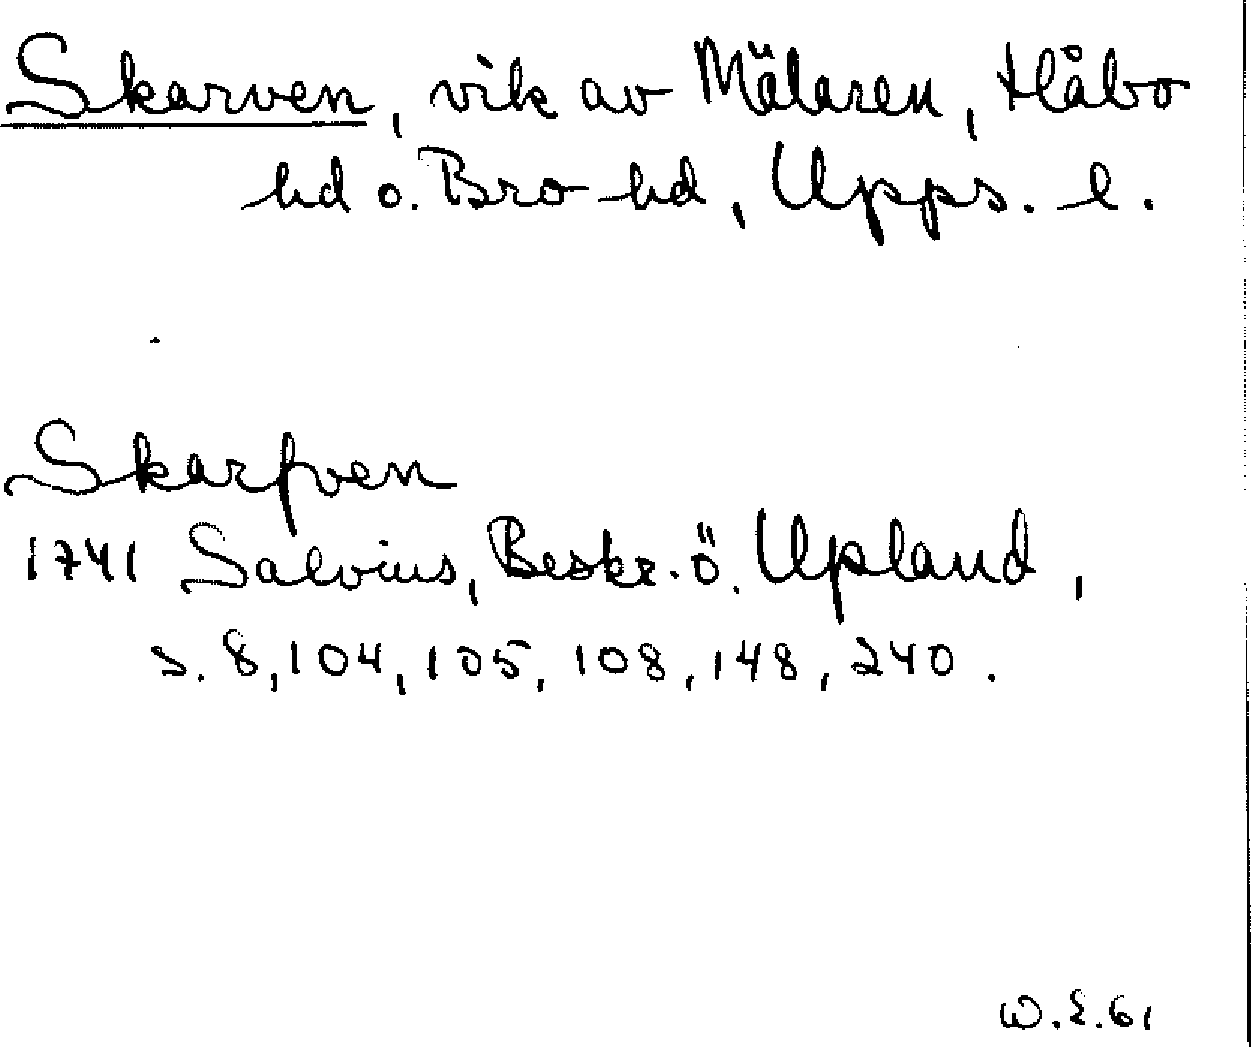 Skarven, vik av Mälaren, Håbo
hd o. Bro hd, Upps. l.
Skarfven
1741 Salvius, Beskr. ö. Upland,
s. 8, 104, 105, 108, 148, 240.
W.E.61